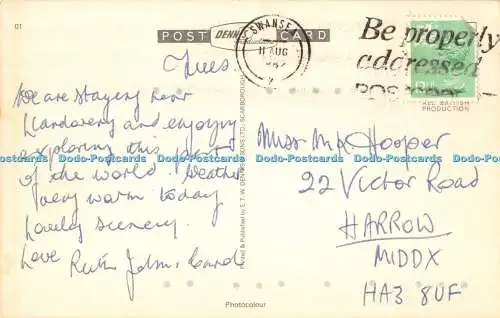 G1
POST DENNIS CARD
SWANSEA
11 AUG
Be properly
addressed
POSTCODE
ALL BRITISH
PRODUCTION
Tues.
We are staying near
Llandovery and enjoying
exploring this part
of the world. Weather
very warm today
Lovely scenery.
Love Ruth, John, Carol
Printed & Published by E. T. W. DENNIS & SONS LTD., SCARBOROUGH
Miss M Hooper
22 Victor Road
HARROW
MIDDX
HA3 8UF
Photocolour
Dodo-Postcards Dodo-Postcards Dodo-Postcards Dodo-Postcards Dodo-Postcards Dodo-Postcards Dodo-Postcards